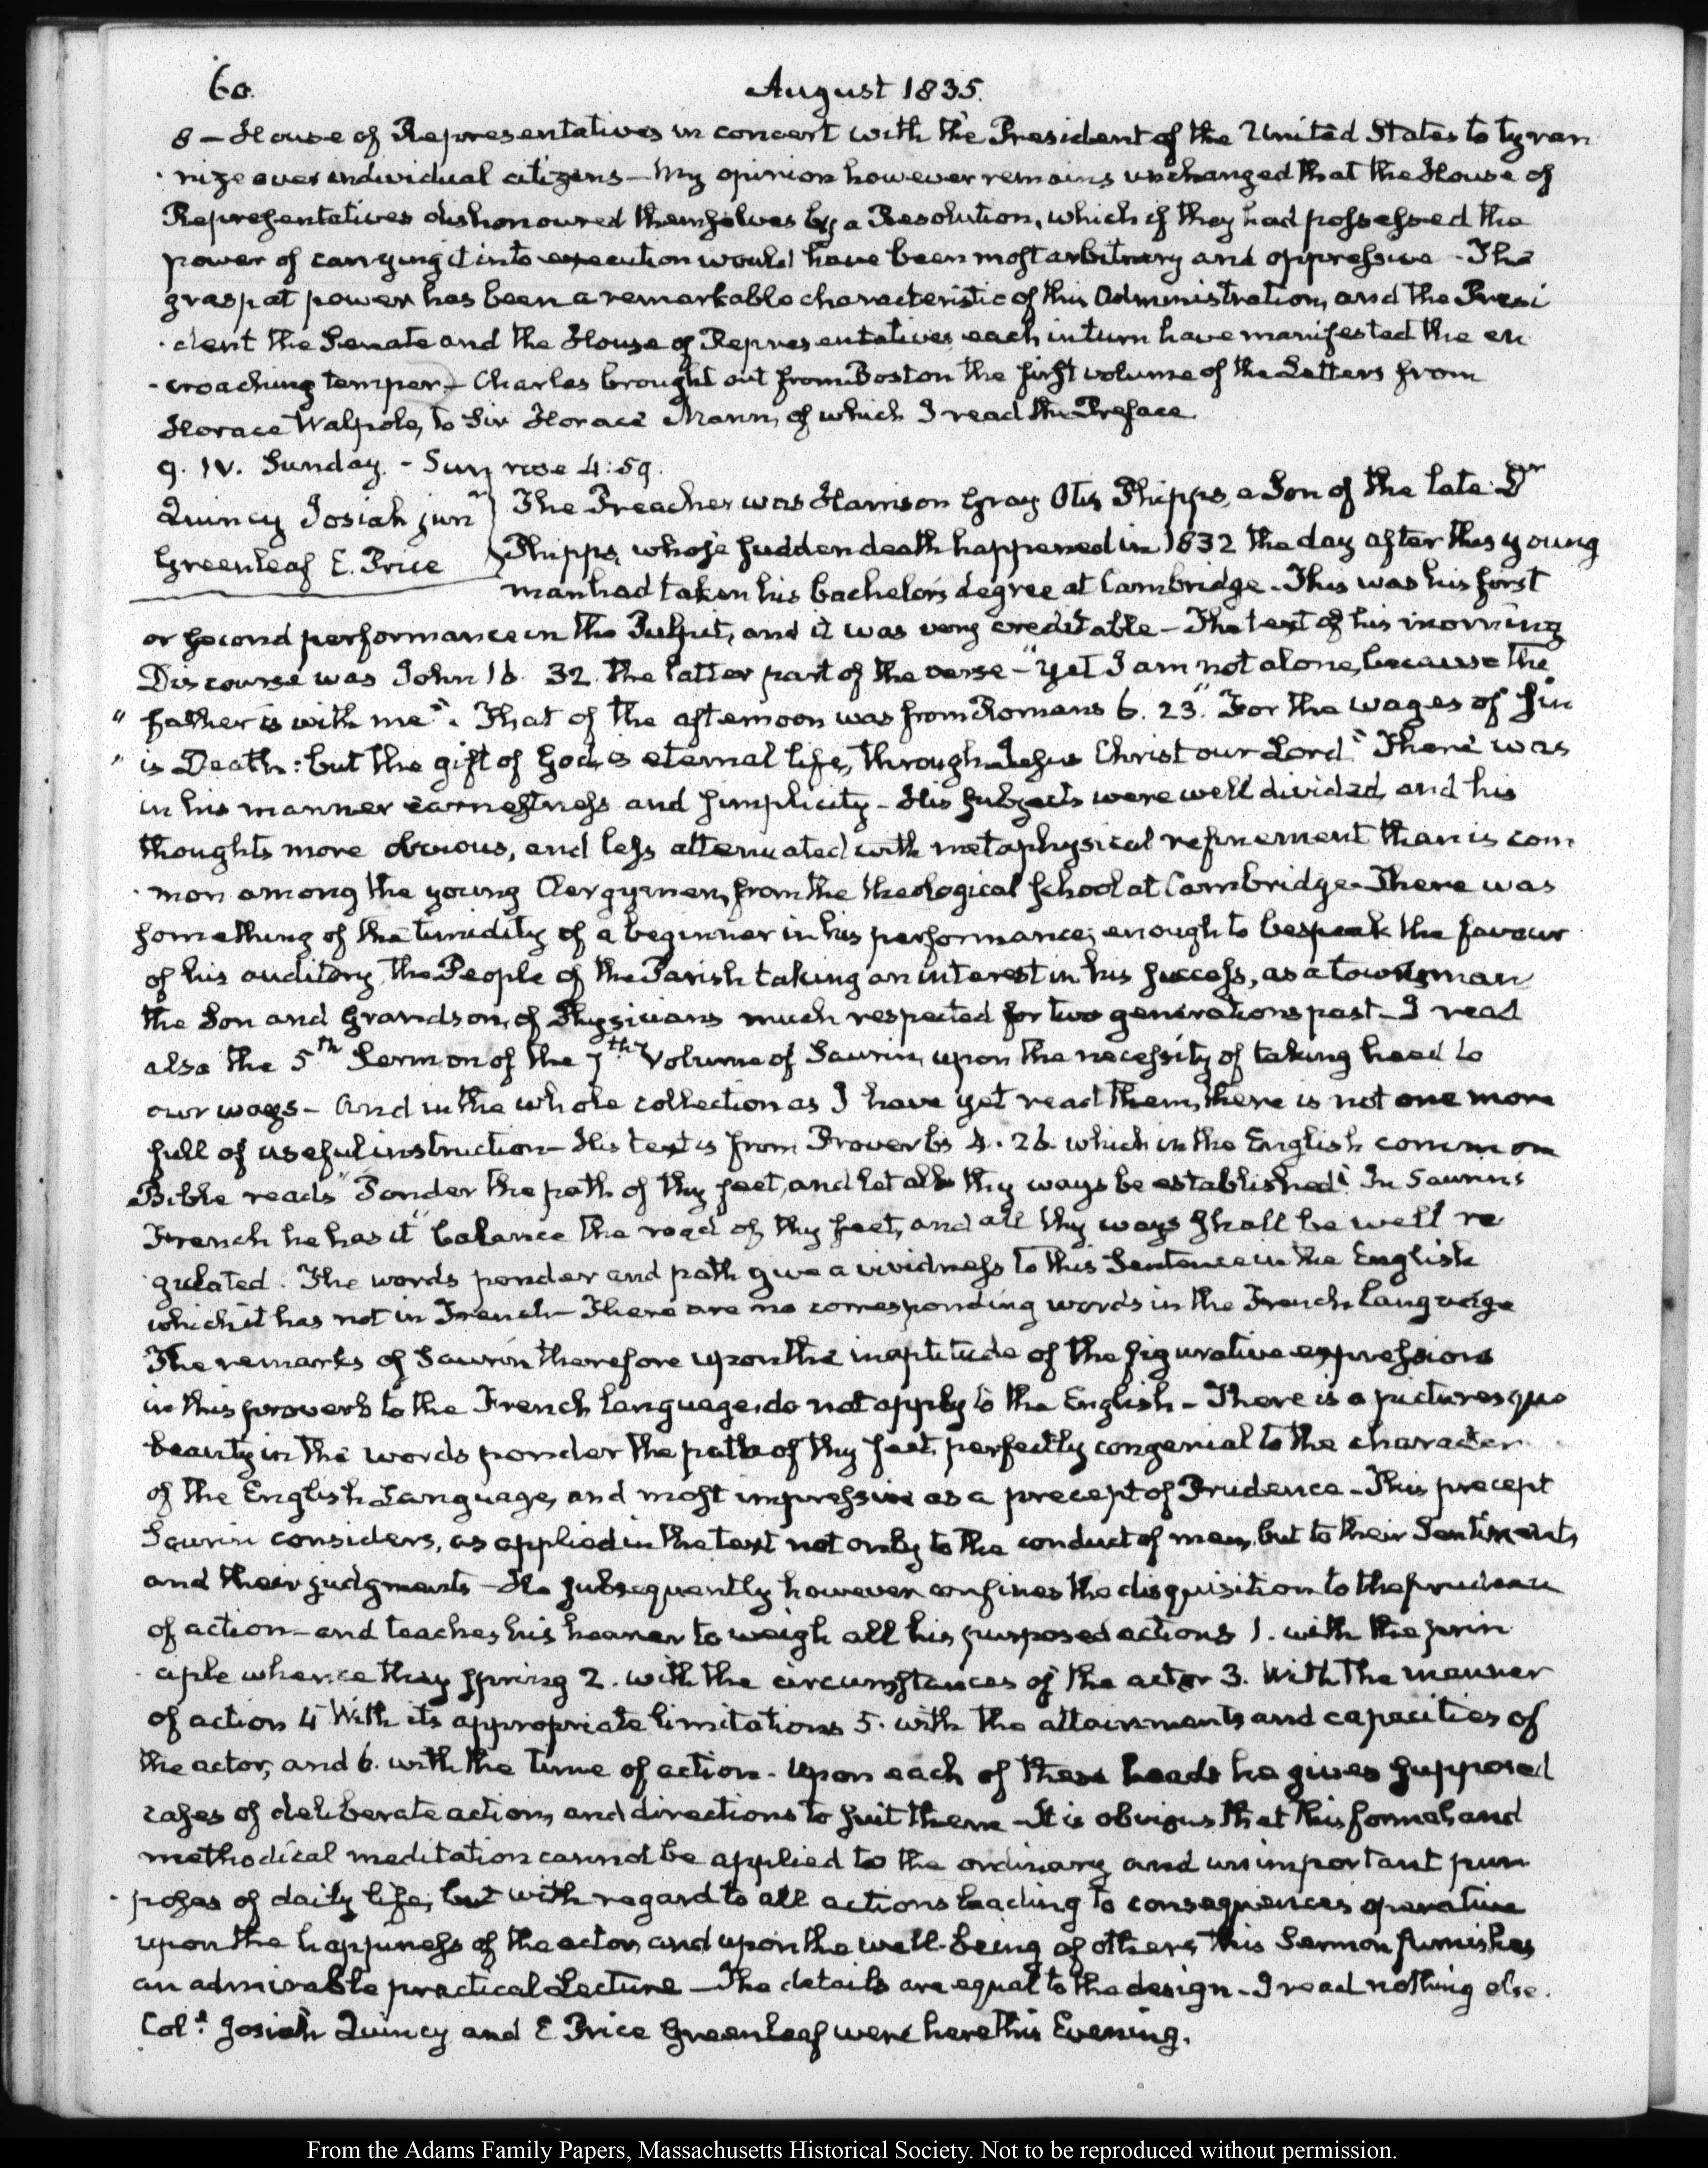 60.
August 1835.
8 - House of Representatives in concert with the President of the United States to tyran
nize over individual citizens - My opinion however remains unchanged that the House of
Representatives dishonoured themselves by a Resolution, which if they had possessed the
power of carrying it into execution would have been most arbitrary and oppressive - The
grasp at power has been a remarkable characteristic of this Administration, and the Presi
dent the Senate and the House of Representatives each in turn have manifested the en
croaching temper - Charles brought out from Boston the first volume of the Letters from
Horace Walpole, to Sir Horace Mann, of which I read the Preface.
9. IV. Sunday. - Sun rose 4:59.
Quincy Josiah junr
Greenleaf E. Price
The Preacher was Harrison Gray Otis Phipps, a Son of the late Dr
Phipps, whose sudden death happened in 1832 the day after this young
man had taken his bachelor's degree at Cambridge - This was his first
or second performance in the Pulpit, and it was very creditable - The text of his morning
Discourse was John 16. 32. the latter part of the verse - "yet I am not alone, because the
" father is with me". That of the afternoon was from Romans 6. 23. "For the wages of sin
" is Death: but the gift of God, is eternal life, through Jesus Christ our Lord" There was
in his manner earnestness and simplicity - His subjects were well divided, and his
thoughts more obvious, and less attenuated with metaphysical refinement than is com
mon among the young Clergymen, from the theological school at Cambridge - There was
something of the timidity of a beginner in his performance; enough to bespeak the favour
of his auditory, the People of the Parish taking an interest in his success, as a townsman
the Son and Grandson, of Physicians much respected for two generations past - I read
also the 5th Sermon of the 7th Volume of Saurin, upon the necessity of taking heed to
our ways - And in the whole collection as I have yet read them, there is not one more
full of useful instruction - His text is from Proverbs 4. 26. which in the English common
Bible reads "Ponder the path of thy feet, and let all thy ways be established" In Saurin's
French he has it "balance the road of thy feet, and all thy ways shall be well re
gulated. The words ponder and path give a vividness to this Sentence in the English
which it has not in French - There are no corresponding words in the French language
The remarks of Saurin therefore upon the inaptitude of the figurative expressions
in this proverb to the French language, do not apply to the English - There is a picturesque
beauty in the words ponder the path of thy feet, perfectly congenial to the character
of the English Language, and most impressive as a precept of Prudence - This precept
Saurin considers, as applied in the text not only to the conduct of men, but to their Sentiments
and their judgments - He subsequently however confines the disquisition to the prudence
of action - and teaches his hearer to weigh all his purposed actions 1. with the prin
ciple whence they spring 2. with the circumstances of the actor 3. With the manner
of action 4 With its appropriate limitations 5. with the attainments and capacities of
the actor, and 6. with the time of action - Upon each of these heads he gives supposed
cases of deliberate action, and directions to suit them - It is obvious that this formal and
methodical meditation cannot be applied to the ordinary and unimportant pur
poses of daily life; but with regard to all actions leading to consequences operative
upon the happiness of the actor, and upon the well-being of others, this Sermon furnishes
an admirable practical Lecture - The details are equal to the design - I read nothing else.
Col.l Josiah Quincy and E Price Greenleaf were here this Evening.
From the Adams Family Papers, Massachusetts Historical Society. Not to be reproduced without permission.